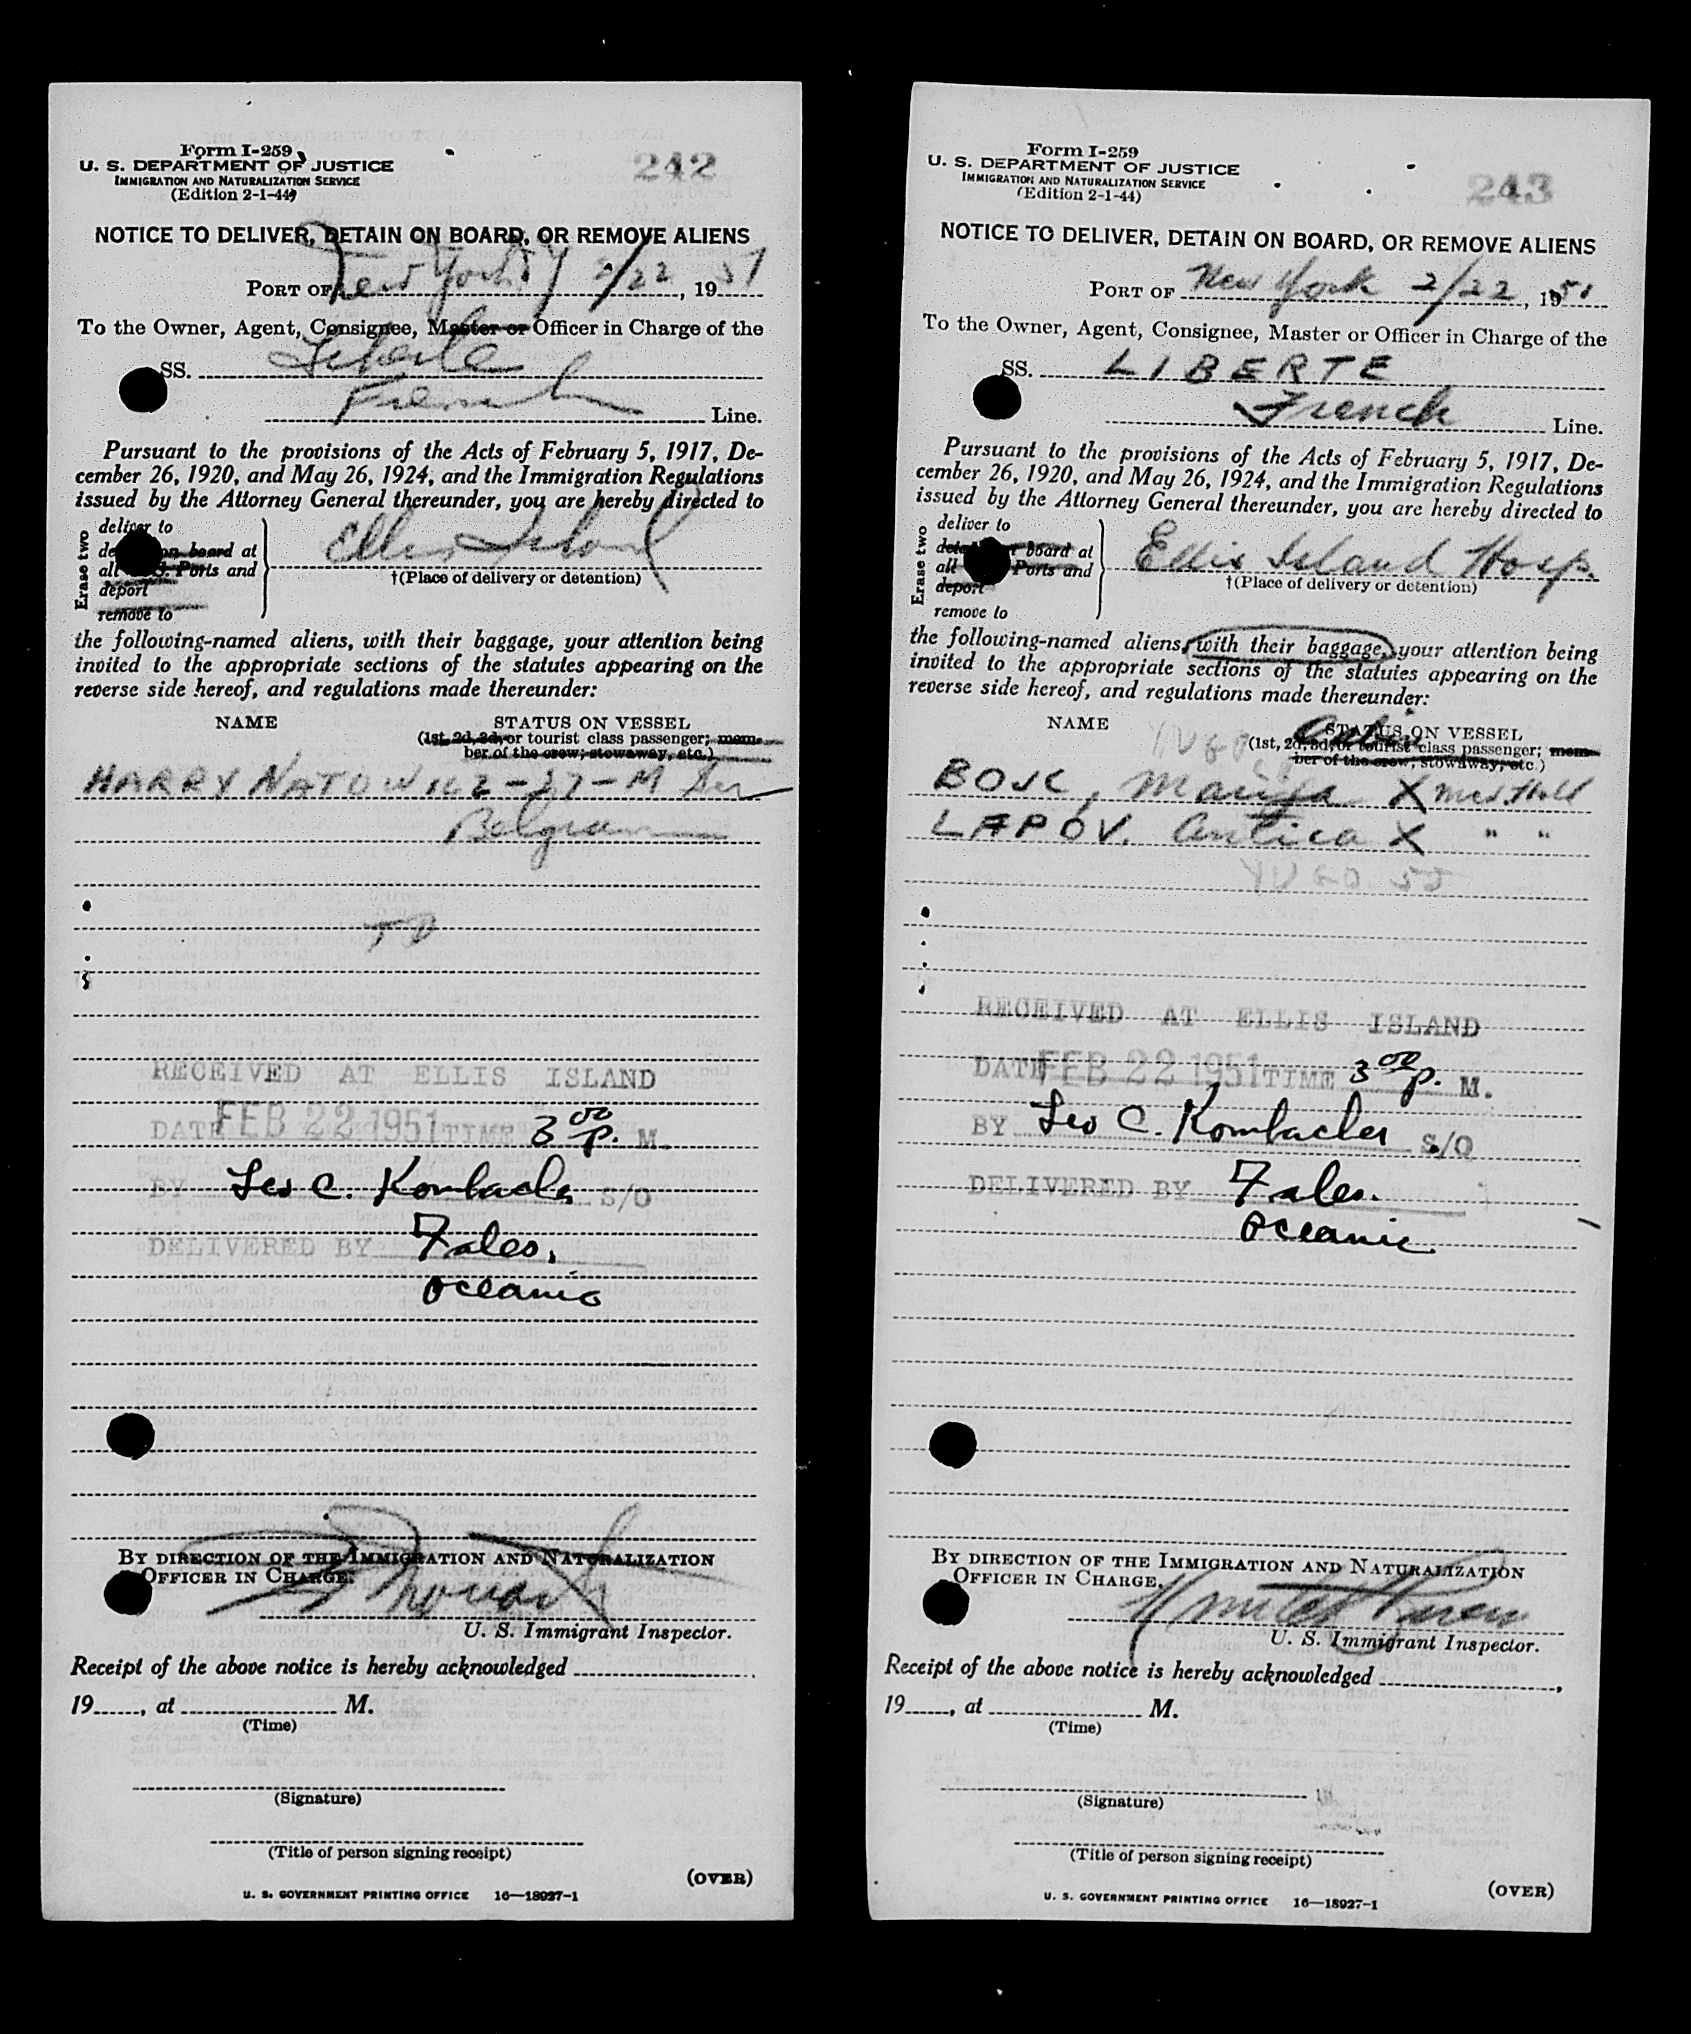 Form I-259
U. S. DEPARTMENT OF JUSTICE
IMMIGRATION AND NATURALIZATION SERVICE
(Edition 2-1-44)
242
NOTICE TO DELIVER, DETAIN ON BOARD, OR REMOVE ALIENS
PORT OF New York 2/22, 1951
To the Owner, Agent, Consignee, Master or Officer in Charge of the
SS. Liberte
French Line.
Pursuant to the provisions of the Acts of February 5, 1917, De-
cember 26, 1920, and May 26, 1924, and the Immigration Regulations
issued by the Attorney General thereunder, you are hereby directed to
Erase two
deliver to
on board at
all Ports and
deport
remove to
Ellis Island
†(Place of delivery or detention)
the following-named aliens, with their baggage, your attention being
invited to the appropriate sections of the statutes appearing on the
reverse side hereof, and regulations made thereunder:
NAME STATUS ON VESSEL
(1st, 2d, 3d, or tourist class passenger; mem-
ber of the crew; stowaway, etc.)
HARRY NATOWICZ - 27 - M
TD
RECEIVED AT ELLIS ISLAND
DATE FEB 22 1951 TIME 3 00 P. M.
BY Leo C. Kombacher S/O
DELIVERED BY Fales.
Oceanic
BY DIRECTION OF THE IMMIGRATION AND NATURALIZATION
OFFICER IN CHARGE.
U. S. Immigrant Inspector.
Receipt of the above notice is hereby acknowledged
19, at M.
(Time)
(Signature)
(Title of person signing receipt)
(OVER)
U. S. GOVERNMENT PRINTING OFFICE 16—18927-1
Form I-259
U. S. DEPARTMENT OF JUSTICE
IMMIGRATION AND NATURALIZATION SERVICE
(Edition 2-1-44)
243
NOTICE TO DELIVER, DETAIN ON BOARD, OR REMOVE ALIENS
PORT OF New York 2/22, 1951
To the Owner, Agent, Consignee, Master or Officer in Charge of the
SS. LIBERTE
French Line.
Pursuant to the provisions of the Acts of February 5, 1917, De-
cember 26, 1920, and May 26, 1924, and the Immigration Regulations
issued by the Attorney General thereunder, you are hereby directed to
Erase two
deliver to
board at
all Ports and
deport
remove to
Ellis Island Hosp.
†(Place of delivery or detention)
the following-named aliens, with their baggage, your attention being
invited to the appropriate sections of the statutes appearing on the
reverse side hereof, and regulations made thereunder:
NAME YUGO Cabin STATUS ON VESSEL
(1st, 2d, 3d, or tourist class passenger; mem-
ber of the crew; stowaway, etc.)
BOSK, Marija X Med. Hold
LAPOV, Antica X " "
YUGO 55
RECEIVED AT ELLIS ISLAND
DATE FEB 22 1951 TIME 3 00 P. M.
BY Leo C. Kombacher S/O
DELIVERED BY Fales.
Oceanic
BY DIRECTION OF THE IMMIGRATION AND NATURALIZATION
OFFICER IN CHARGE.
U. S. Immigrant Inspector.
Receipt of the above notice is hereby acknowledged
19, at M.
(Time)
(Signature)
(Title of person signing receipt)
(OVER)
U. S. GOVERNMENT PRINTING OFFICE 16—18927-1